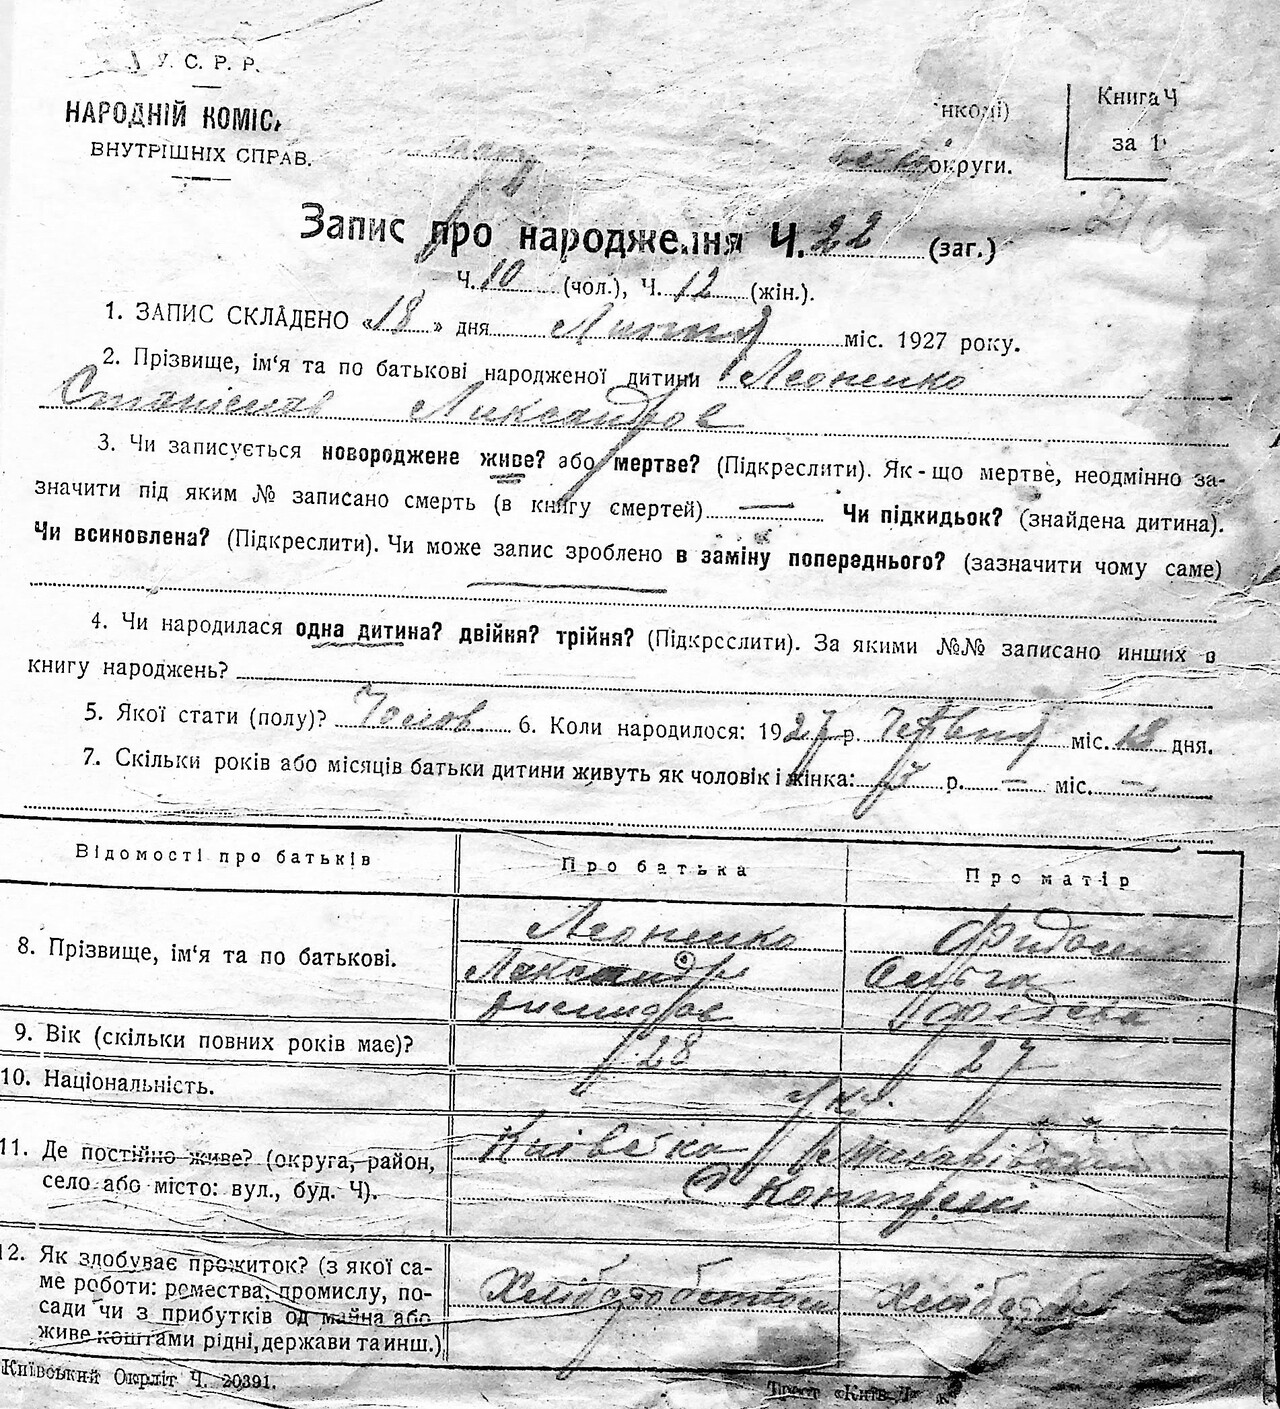 У. С. Р. Р.
НАРОДНІЙ КОМІС
ВНУТРІШНІХ СПРАВ.
округи.
Книга Ч
за 1
Запис про народження Ч. 22 (заг.)
Ч. 10 (чол.), Ч. 12 (жін.).
1. ЗАПИС СКЛАДЕНО «18» дня Липня міс. 1927 року.
2. Прізвище, ім'я та по батькові народженої дитини Леоненко
Станіслав Лександров
3. Чи записується новороджене живе? або мертве? (Підкреслити). Як-що мертве, неодмінно за-
значити під яким № записано смерть (в книгу смертей) — Чи підкидьок? (знайдена дитина).
Чи всиновлена? (Підкреслити). Чи може запис зроблено в заміну попереднього? (зазначити чому саме)
4. Чи народилася одна дитина? двійня? трійня? (Підкреслити). За якими №№ записано инших в
книгу народжень?
5. Якої стати (полу)? Чолов. 6. Коли народилося: 1927 р. Червня міс. 18 дня.
7. Скільки років або місяців батьки дитини живуть як чоловік і жінка: 7 р. — міс. —
Відомості про батьків Про батька Про матір
8. Прізвище, ім'я та по батькові. Леоненко
Лександр Ольга
9. Вік (скільки повних років має)? 28 27
10. Національність. Укр.
11. Де постійно живе? (округа, район, Київська Макарівський
село або місто: вул., буд. Ч).
12. Як здобуває прожиток? (з якої са-
ме роботи: ремества, промислу, по-
сади чи з прибутків од майна або
живе коштами рідні, держави та инш.)
Київський Окрліт Ч. 20391.